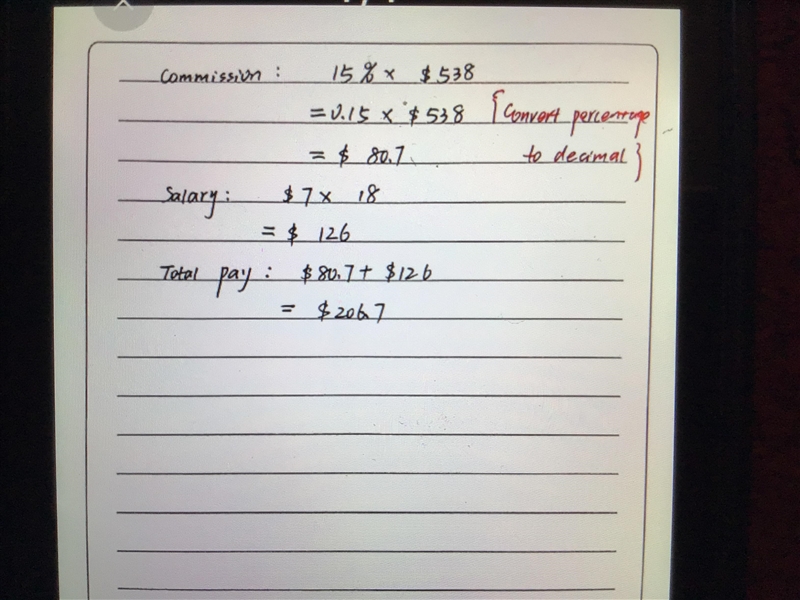 Commission : 15% × $538
= 0.15 × $538 {Convert percentage
= $ 80.7 to decimal}
Salary : $7 × 18
= $ 126
Total pay : $80.7 + $126
= $206.7